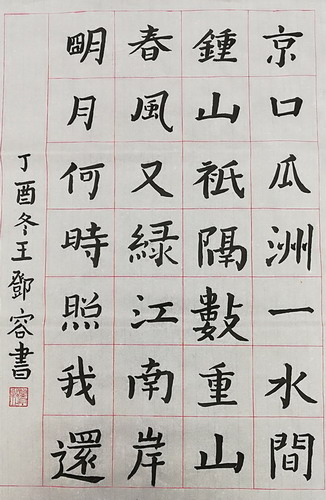 京口瓜洲一水間
鍾山祇隔數重山
春風又綠江南岸
明月何時照我還
丁酉冬王鄧容書